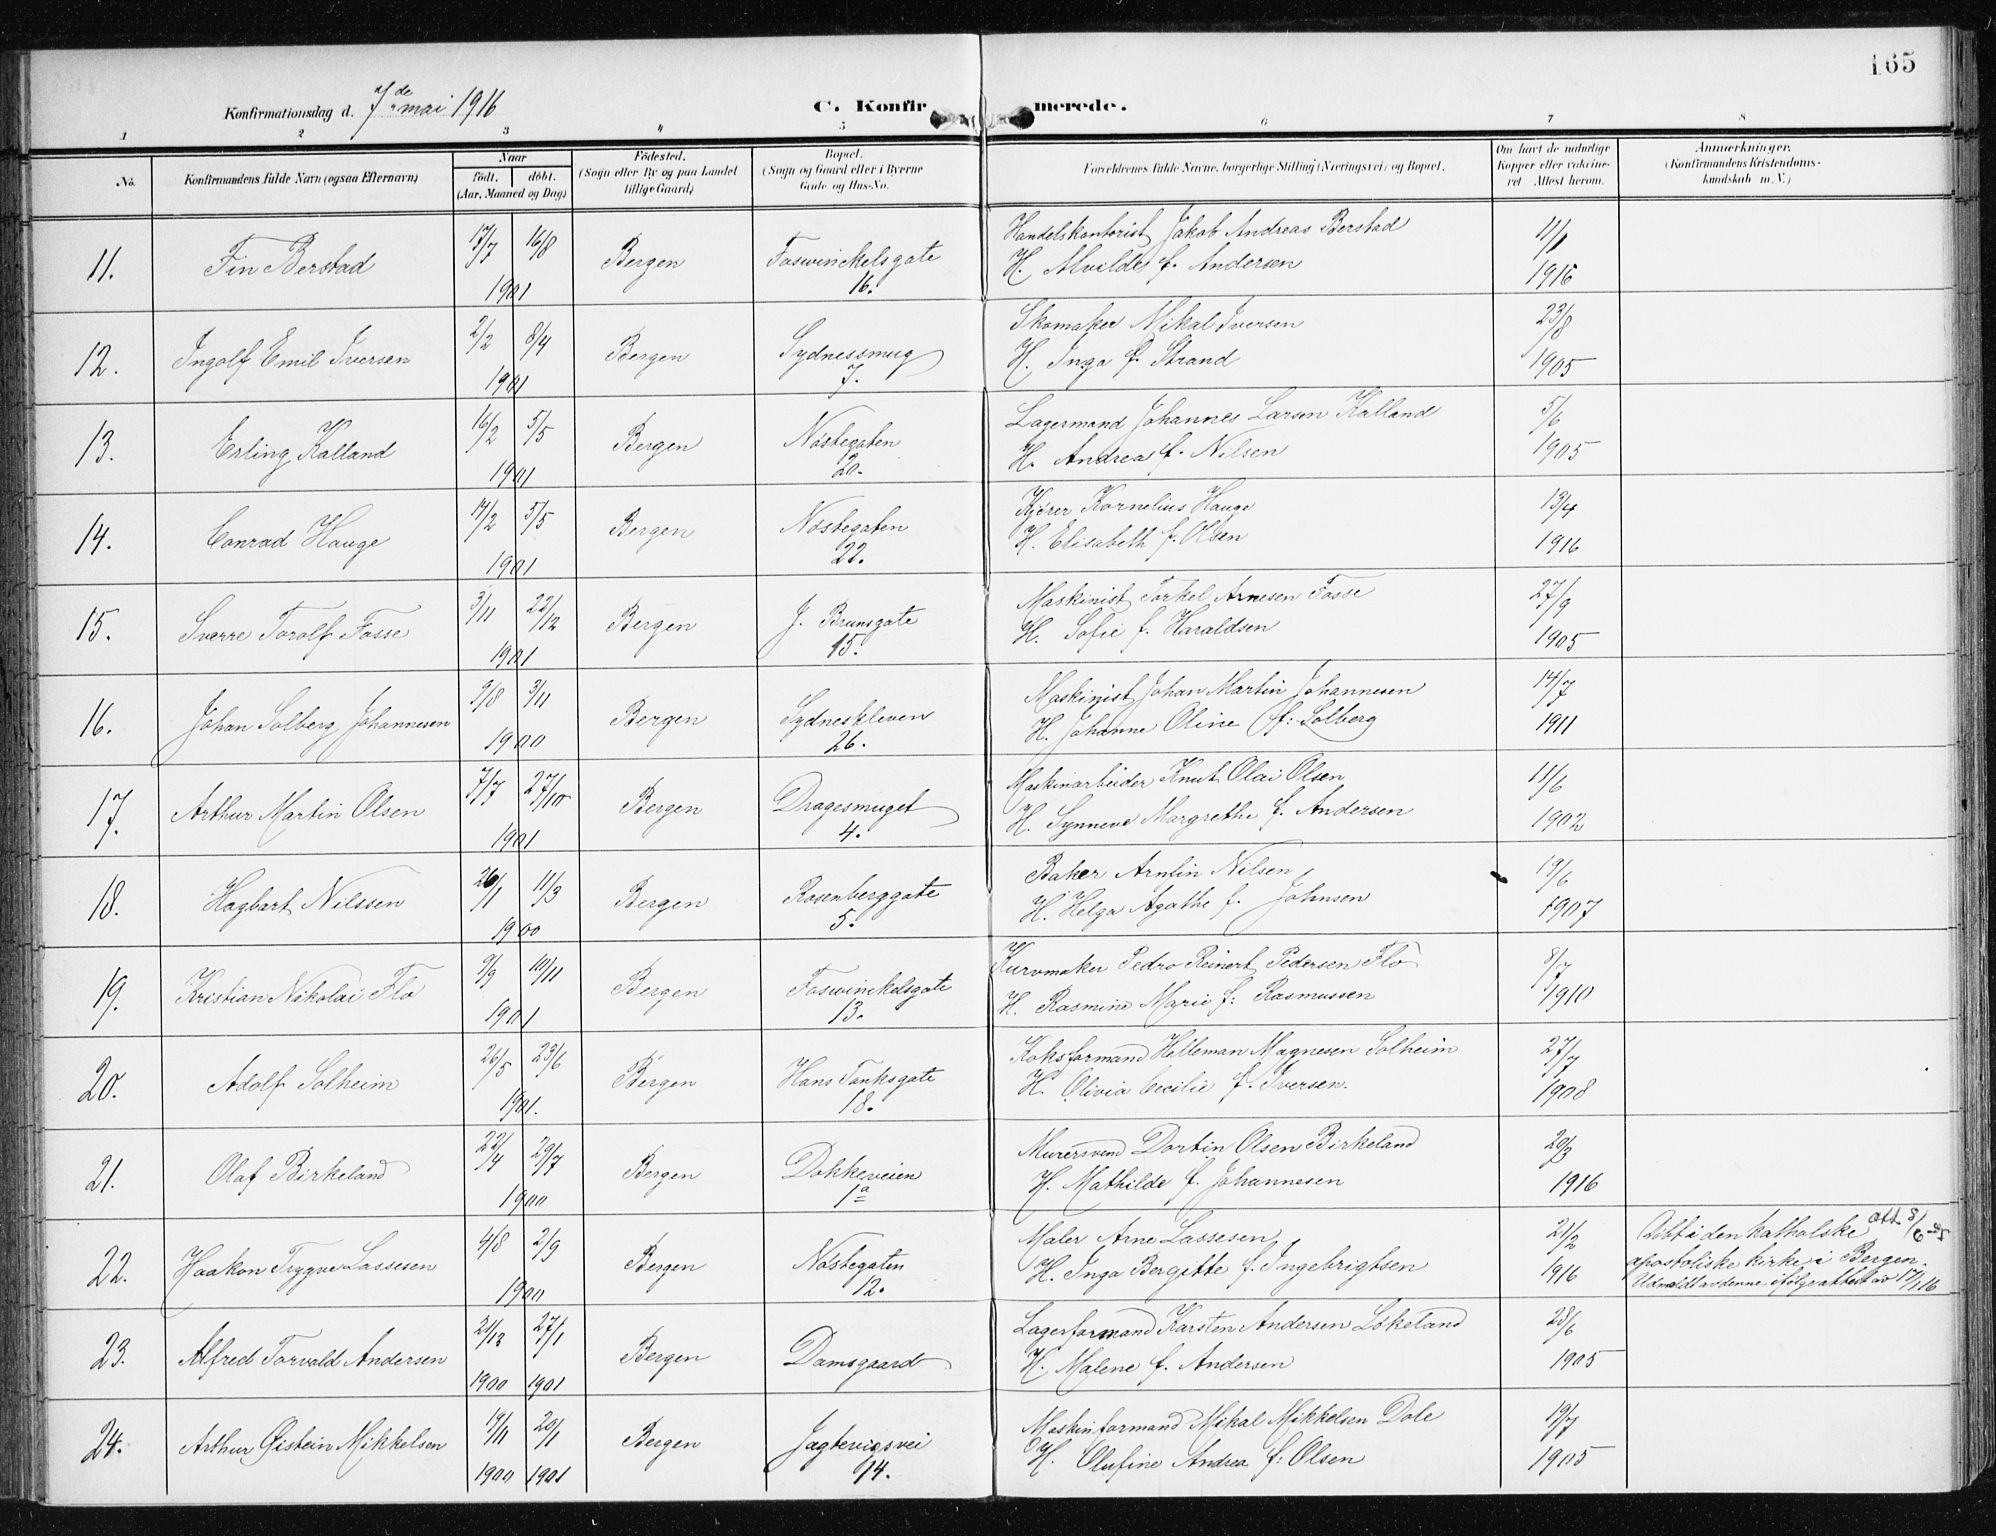 165
Konfirmationsdag d. 7de mai 1916
C. Konfirmerede.
1 2 3 4 5 6 7 8
No.
Konfirmandens fulde Navn (ogsaa Efternavn)
Naar
født. døbt.
(Aar, Maaned og Dag)
Fødested.
(Sogn eller By og paa Landet
tillige Gaard)
Bopæl.
(Sogn og Gaard eller i Byerne
Gade og Hus-No.
Forældrenes fulde Navne, borgerlige Stilling (Næringsvei) og Bopæl.
Om havt de naturlige
Kopper eller vakcine-
ret Attest herom.
Anmærkninger.
(Konfirmandens Kristendoms-
kundskab m. V.)
11. Fin Berstad 17/7 16/8 1901 Bergen Foswinckelsgate 16.
Handelskontorist Jakob Andreas Berstad
H. Alvilde f. Andersen
11/1 1916
12. Ingolf Emil Iversen 2/2 8/4 1901 Bergen Sydnessmug 7.
Skomaker Mikal Iversen
H. Inga f. Strand
23/8 1905
13. Erling Kalland 16/2 5/5 1901 Bergen Nøstegaten 20.
Lagermand Johannes Larsen Kalland
H. Andrea f. Nilsen
5/6 1905
14. Conrad Hauge 14/2 5/5 1901 Bergen Nøstegaten 22.
Kjører Kornelius Hauge
H. Elisabeth f. Olsen
13/4 1916
15. Sverre Torolf Fosse 3/11 22/12 1901 Bergen J. Brunsgate 15.
Maskinist Torkel Arnesen Fosse
H. Sofie f. Haraldsen
27/9 1905
16. Johan Solberg Johannesen 9/8 3/11 1900 Bergen Sydneskleven 26.
Maskinist Johan Martin Johannesen
H. Johanne Oline f: Solberg
14/7 1911
17. Arthur Martin Olsen 7/7 27/10 1901 Bergen Dragesmuget 4.
Maskinarbeider Knut Olai Olsen
H. Synneve Margrethe f. Andersen
11/6 1902
18. Hagbart Nilssen 26/1 11/3 1900 Bergen Rosenberggate 5.
Baker Arntin Nilsen
H. Helga Agathe f. Johnsen
19/6 1907
19. Kristian Nikolai Flo 9/9 10/11 1901 Bergen Foswinckelsgate 13.
Kurvmaker Pedro Reinert Pedersen Flo
H. Rasmine Marie f: Rasmussen
8/7 1910
20. Adolf Solheim 26/5 23/6 1901. Bergen Hans Tanksgate 18.
Koksformand Helleman Magnesen Solheim
H. Olivia Cecilie f. Iversen.
27/7 1908
21. Olaf Birkeland 22/4 29/7 1900 Bergen Dokkeveien 1a
Murersvend Dortin Olsen Birkeland
H. Mathilde f. Johannesen
20/3 1916
22. Haakon Trygve Lassesen 4/8 2/9 1900 Bergen Nøstegaten 12.
Maler Arne Lassesen
H. Inga Bergitte f. Ingebrigtsen
21/2 1916
Døbt i den katholske
apostoliske kirke i Bergen.
Udmeldt av denne ifølge attest av 17/1 16
23. Alfred Torvald Andersen 21/12 27/1 1900 1901 Bergen Damsgaard
Lagerformand Karsten Andersen Løkeland
H. Malene f. Andersen
28/6 1905
24. Arthur Øistein Mikkelsen 19/11 20/1 1900 1901 Bergen Jægtevigsvei 14.
Maskinformand Mikal Mikkelsen Dale
H. Olufine Andrea f: Olsen
19/7 1905